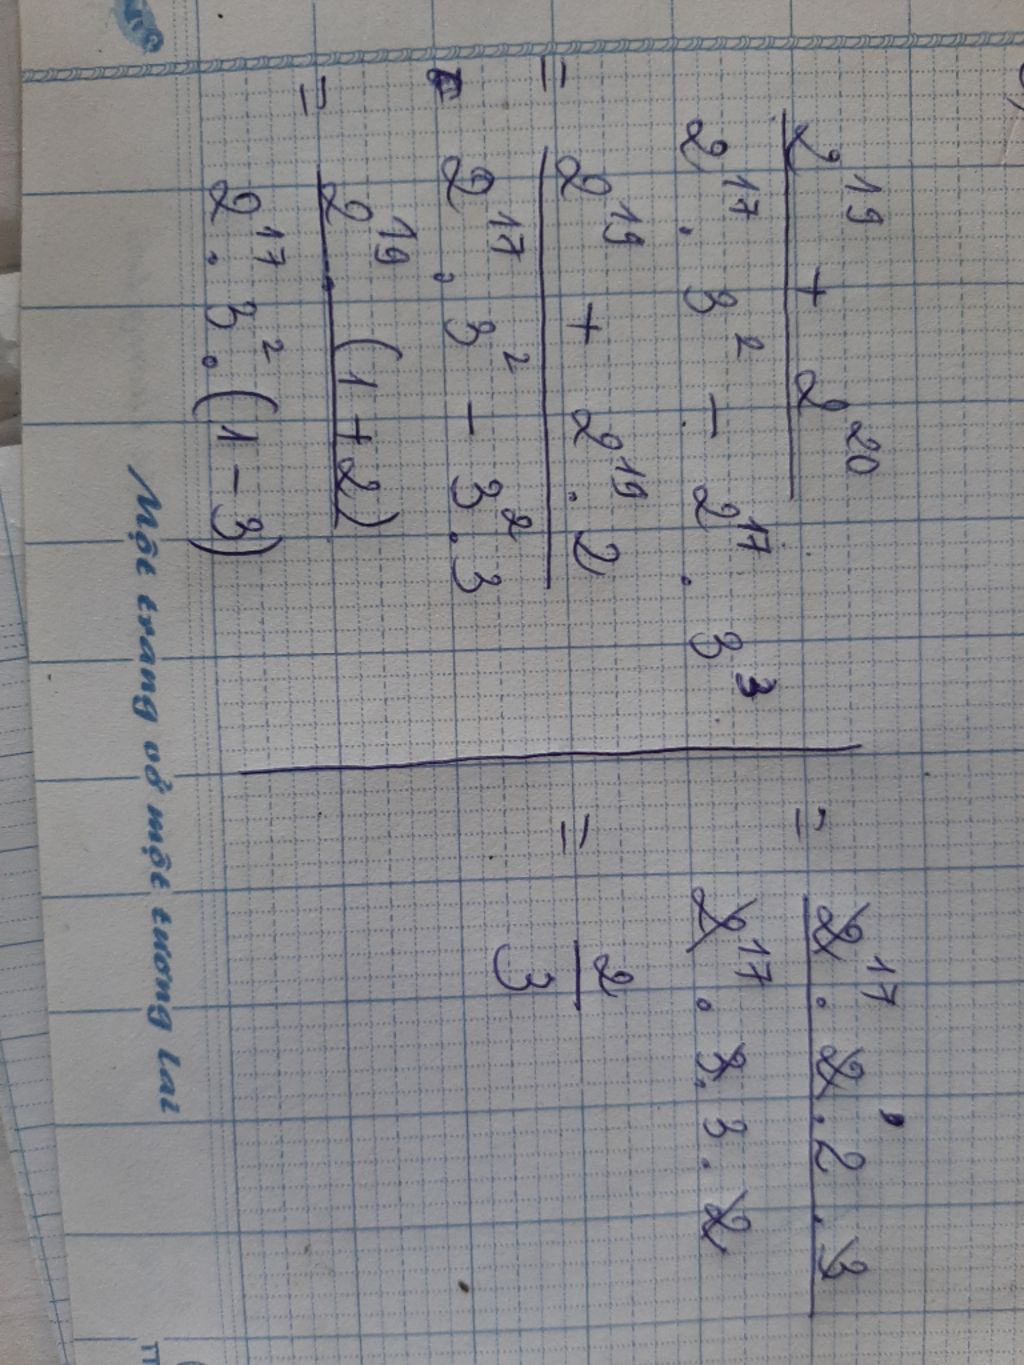 2^19 + 2^20
2^17 . 3^2 - 2^17 . 3^3
= 2^19 + 2^19 . 2
2^17 . 3^2 - 3^2 . 3
= 2^19 . (1 + 2)
2^17 . 3^2 . (1 - 3)
= 2^17 . 2 . 2 . 3
2^17 . 3 . 3 . 2
= 2
3
Một trang vở một tương lai